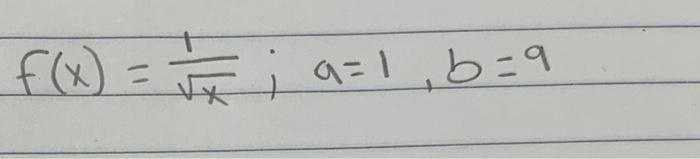 f(x) = 1/√x ; a=1 , b=9